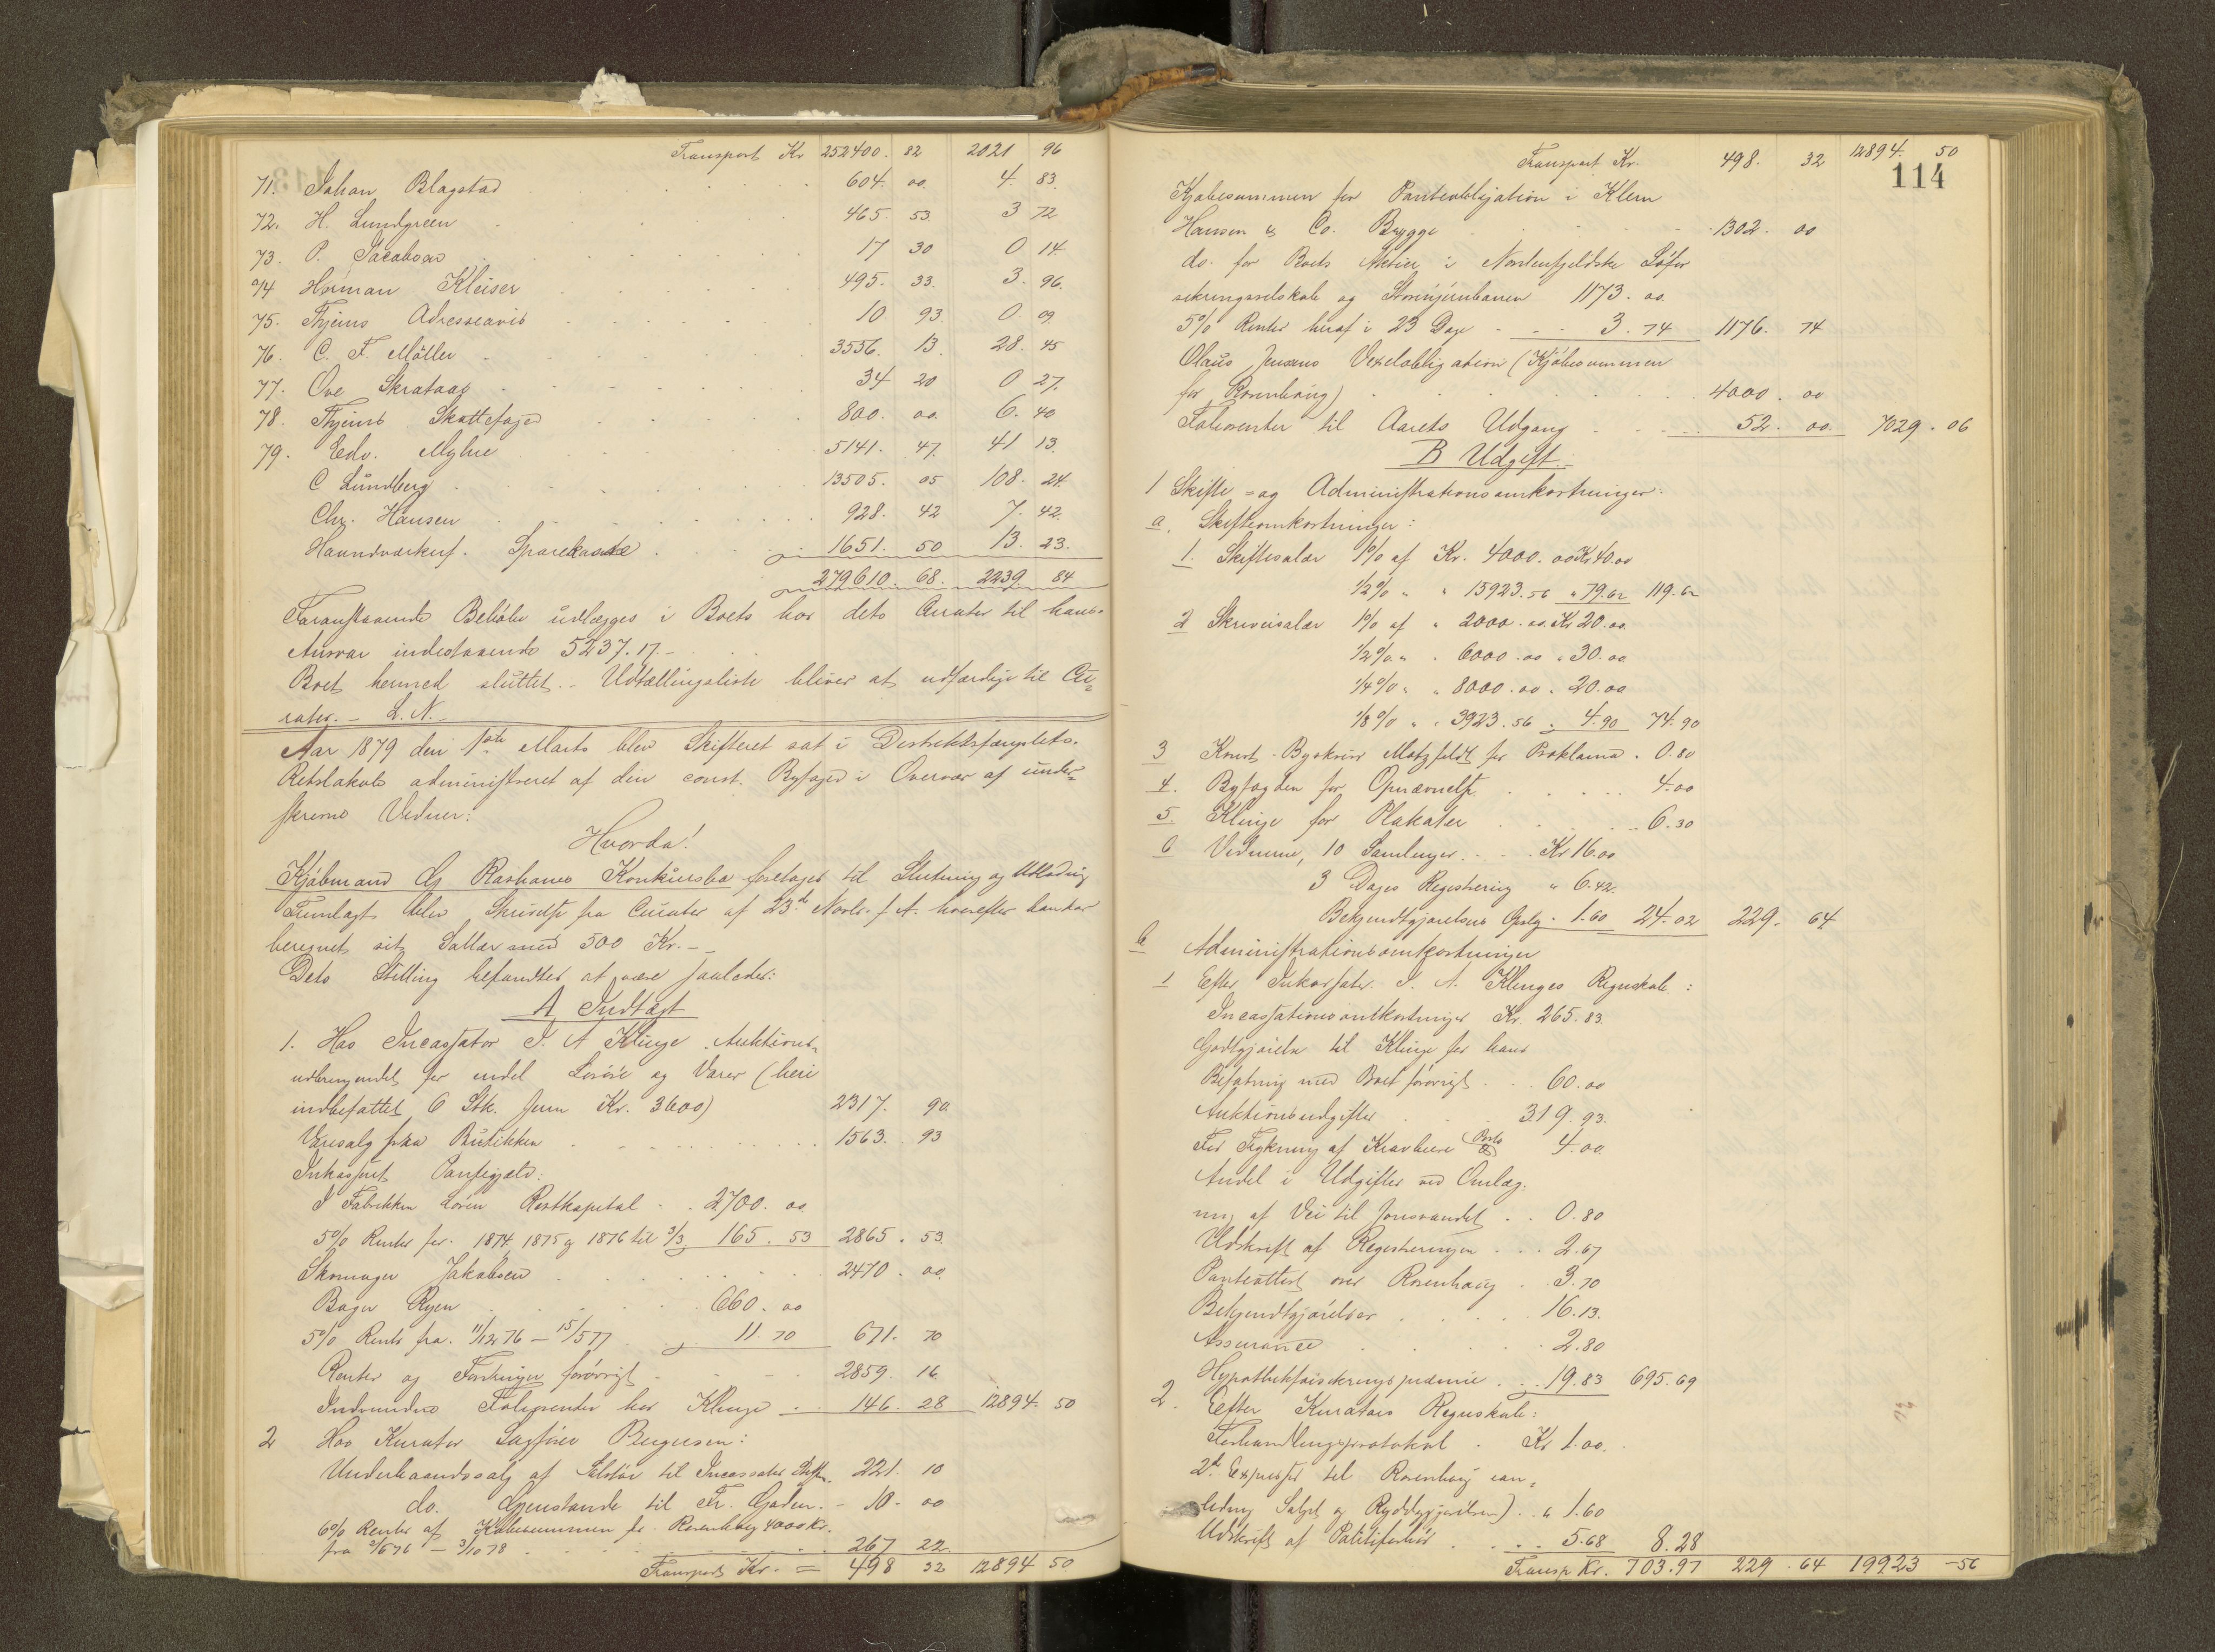 Transport Kr 252400. 82 2021 96
71. Johan Blagstad 604. 00. 4. 83.
72. H. Lundgreen 465. 53. 3 72
73. P. Jacobsen 17 30 0 14.
74 Herman Kleiser 495. 33. 3. 96.
75. Thjems Adresseavis 10 93. 0. 09.
76. C. F. Möller 3556. 13. 28. 45
77. Ove Skrataas 34 20 0 27.
78. Thjems Skattefoged 800. 00. 6. 40
79. Edv. Myhre 5141. 47. 41 13.
C Lundberg 13505. 05 108. 24.
Chr. Hansen 928. 42 7. 42.
Haandværkerf. Sparekasse 1651. 50 13. 23.
279610. 68. 2239. 84
Foranstaaende Beløb udlægges i Boets hos dets Curator til hans
Ansvar indestaaende 5237.17.-
Boet hermed sluttet.- Udtællingsliste bliver at udfærdige til Cu-
rator.- L. N.-
Aar 1879 den 1ste Marts blev Skifteret sat i Distriktsfængslets
Retslokale administreret af den const. Byfoged i Overvær af under-
skrevne Vidner:
Hvorda!
Kjøbmand Chr Rashaues Konkursbo foretaget til Slutning og Udlodning
Fremlagt blev Skrivelse fra Curator af 23de Novbr. f. A. hvorefter han har
beregnet sit Sallær med 500 Kr.-
Dets Stilling befandtes at være saaledes:
A. Indtægt
1. Hos Incassator J. A Klinge Auktions-
udbringendet for endel Løsøre og Varer (heri
indbefattet 6 Stk. Jern Kr. 3600) 2317. 90.
Varesalg fra Butikken 1563. 93
Inkasseret Pantegjæld:
I Fabrikken Løren Restkapital 2700. 00
5% Renter for 1874, 1875 og 1876 til 3/3 165. 53 2865. 53.
Skomager Jakobsen 2470. 00.
Bager Ryen 660. 00
5% Rente fra 11/12 76 - 15/5 77 11. 70 671. 70
Renter og Fordringer forøvrigt 2859. 16.
Indvundne Folierenter hos Klinge 146. 28 12894. 50
2 Hos Kurator Sagfører Bugesen:
Underhaandssalg af til Incassator 221. 10
do. Gjenstande til Fr. Gaden. 10. 00
6% Renter af Kjøbesummen for Rosenborg 4000 Kr.
fra 3/6 76 - 3/10 78 267 22.
Transport Kr. = 498 32 12894 50
114
Transport Kr. 498. 32 12894. 50
Kjøbesummen for Panteobligation i Klem
Hansen & Co. Brygge 1302. 00
do. for Boets Aktier i Nordenfjeldske Søfor
sikringsselskab og Størenjernbanen 1173. 00.
5% Renter heraf i 23 Dage 3. 74 1176. 74
Olaus Jensens Vexelobligation (Kjøbesummen
for Rosenborg) 4000. 00
Folierenter til Aarets Udgang 52. 00. 7029. 06
B Udgift.
1 Skifte- og Administrationsomkostninger:
a. Skifteomkostninger:
1. Skiftesalær 1% af Kr. 4000. 00 Kr 40.00
1/2% " " 15923.56 " 79.62 119.62
2 Skriversalær 1% af " 2000.00. Kr 20.00.
1/2% " " 6000.00 " 30.00
1/4% " " 8000.00 " 20.00
1/8% " " 3923.56 " 4.90 74.90
3 Const. Byskriver Motzfeldt for Proklama 0.80
4. Byfogden for Opnævnelse 4.00
5. Klinge for Plakater 6.30
6 Vidnerne, 10 Samlinger Kr 16.00
3 Dages Registrering " 6.42.
Bekjendtgjørelses Opslg. 1.60 24.02 229. 64
b Administrationsomkostninger
1 Efter Inkassator J. A. Klinges Regnskab:
Incassationsomkostninger Kr. 265.83.
Godtgjørelse til Klinge for hans
Befatning med Boet forøvrigt 60.00
Auktionsudgifter 319.93.
For Trykning af Kravbreve Porto & 4.00.
Andel i Udgifter ved Omlæg-
ning af Vei til Jonsvandet 0.80
Udskrift af Registreringen 2.67
Panteattest over Rosenborg 3.70
Bekjendtgjørelser 16.13.
Assurance 2.80
Hypothekforsikringspræmie 19.83 695.69
2. Efter Kurators Regnskab:
Forhandlingsprotokol Kr 1.00.
2de Expresser til Rosenborg (an-
ledning Salget og Ryddiggjørelsen) " 1.60
Udskrift af 5.68 8.28
Transp Kr. 703.97 229.64 19923-56